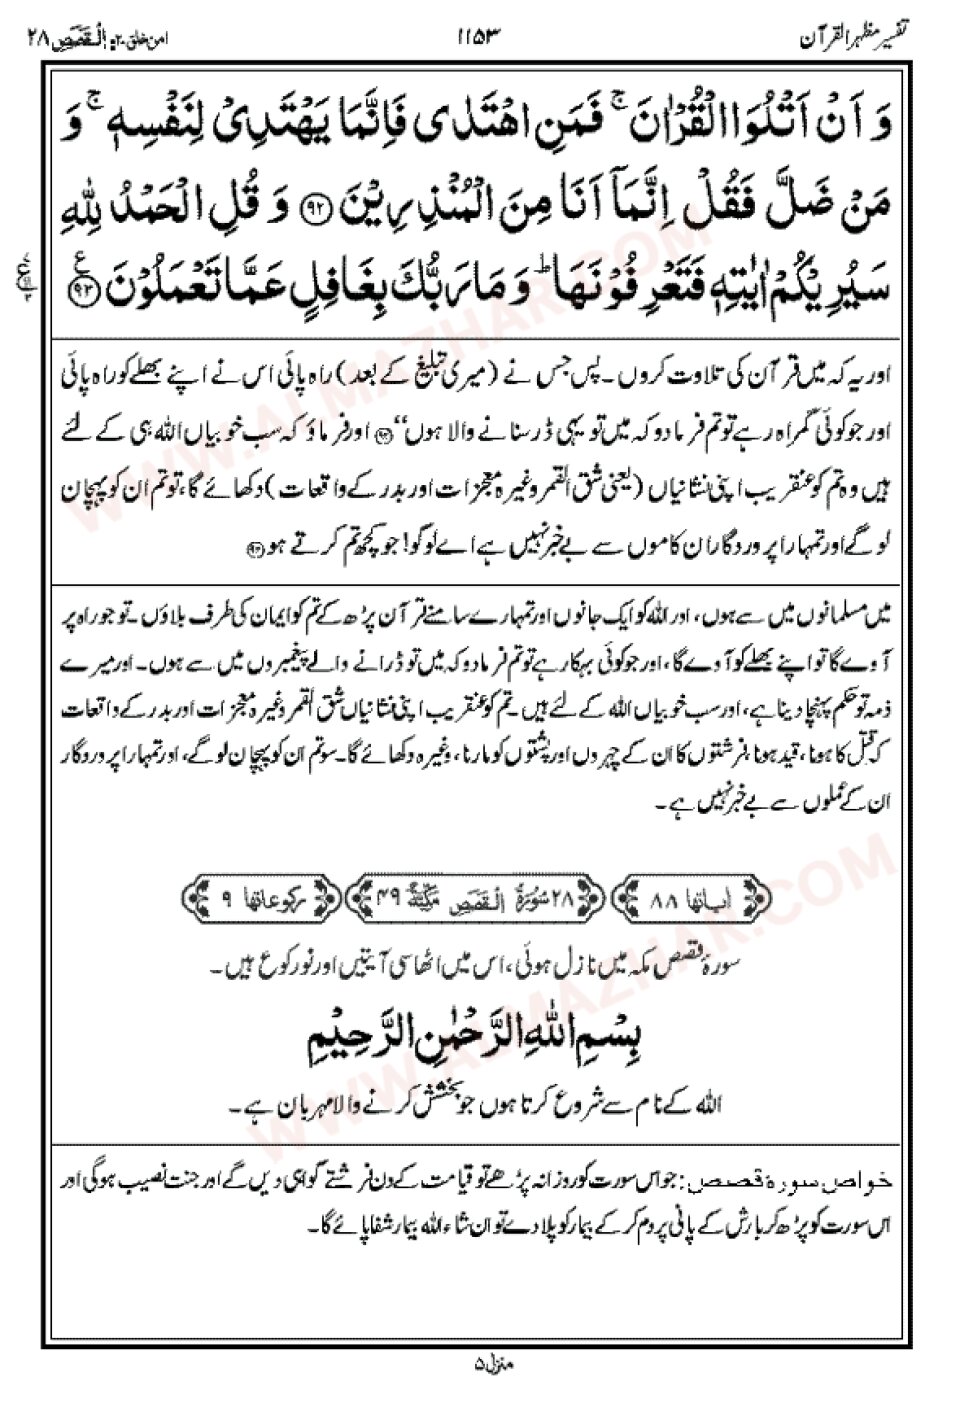 تفسیر مظہر القرآن
۱۱۵۳
امن خلق۔۲۰ اَلْقَصَص ۲۸
وَ اَنْ اَتْلُوَا الْقُرْاٰنَ ۚ فَمَنِ اهْتَدٰی فَاِنَّمَا یَهْتَدِیْ لِنَفْسِهٖ ۚ وَ
مَنْ ضَلَّ فَقُلْ اِنَّمَاۤ اَنَا مِنَ الْمُنْذِرِیْنَ ﴿۹۲﴾ وَ قُلِ الْحَمْدُ لِلّٰهِ
سَیُرِیْكُمْ اٰیٰتِهٖ فَتَعْرِفُوْنَهَا ؕ وَ مَا رَبُّكَ بِغَافِلٍ عَمَّا تَعْمَلُوْنَ ﴿۹۳﴾ ع
اور یہ کہ میں قرآن کی تلاوت کروں۔ پس جس نے (میری تبلیغ کے بعد) راہ پائی اس نے اپنے بھلے کو راہ پائی
اور جو کوئی گمراہ رہے تو تم فرمادو کہ میں تو یہی ڈر سنانے والا ہوں‘‘﴿۹۲﴾ اور فرماؤ کہ سب خوبیاں اللہ ہی کے لئے
ہیں وہ تم کو عنقریب اپنی نشانیاں (یعنی شق القمر وغیرہ معجزات اور بدر کے واقعات) دکھائے گا، تو تم ان کو پہچان
لو گے اور تمہارا پروردگار ان کاموں سے بے خبر نہیں ہے اے لوگو! جو کچھ تم کرتے ہو﴿۹۳﴾
میں مسلمانوں میں سے ہوں، اور اللہ کو ایک جانوں اور تمہارے سامنے قرآن پڑھ کے تم کو ایمان کی طرف بلاؤں۔ تو جو راہ پر
آوے گا تو اپنے بھلے کو آوے گا، اور جو کوئی بہکا رہے تو تم فرمادو کہ میں تو ڈرانے والے پیغمبروں میں سے ہوں۔ اور میرے
ذمہ تو حکم پہنچا دینا ہے، اور سب خوبیاں اللہ کے لئے ہیں۔ تم کو عنقریب اپنی نشانیاں شق القمر وغیرہ معجزات اور بدر کے واقعات
کہ قتل کا ہونا، قید ہونا، فرشتوں کا ان کے چہروں اور پشتوں کو مارنا، وغیرہ دکھائے گا۔ سو تم ان کو پہچان لو گے، اور تمہارا پروردگار
ان کے عملوں سے بے خبر نہیں ہے۔
اٰیاتھا ۸۸ ۲۸ سُوْرَةُ الْقَصَصِ مَکِّیَّةٌ ۴۹ رکوعاتھا ۹
سورۂ قصص مکہ میں نازل ہوئی، اس میں اٹھاسی آیتیں اور نو رکوع ہیں۔
بِسْمِ اللهِ الرَّحْمٰنِ الرَّحِیْمِ
اللہ کے نام سے شروع کرتا ہوں جو بخشش کرنے والا مہربان ہے۔
خواص سورہ قصص: جو اس سورت کو روزانہ پڑھے تو قیامت کے دن فرشتے گواہی دیں گے اور جنت نصیب ہوگی اور
اس سورت کو پڑھ کر بارش کے پانی پر دم کر کے بیمار کو پلا دے تو ان شاء اللہ بیمار شفا پائے گا۔
منزل ۵
WWW.ALMAZHAR.COM
WWW.ALMAZHAR.COM